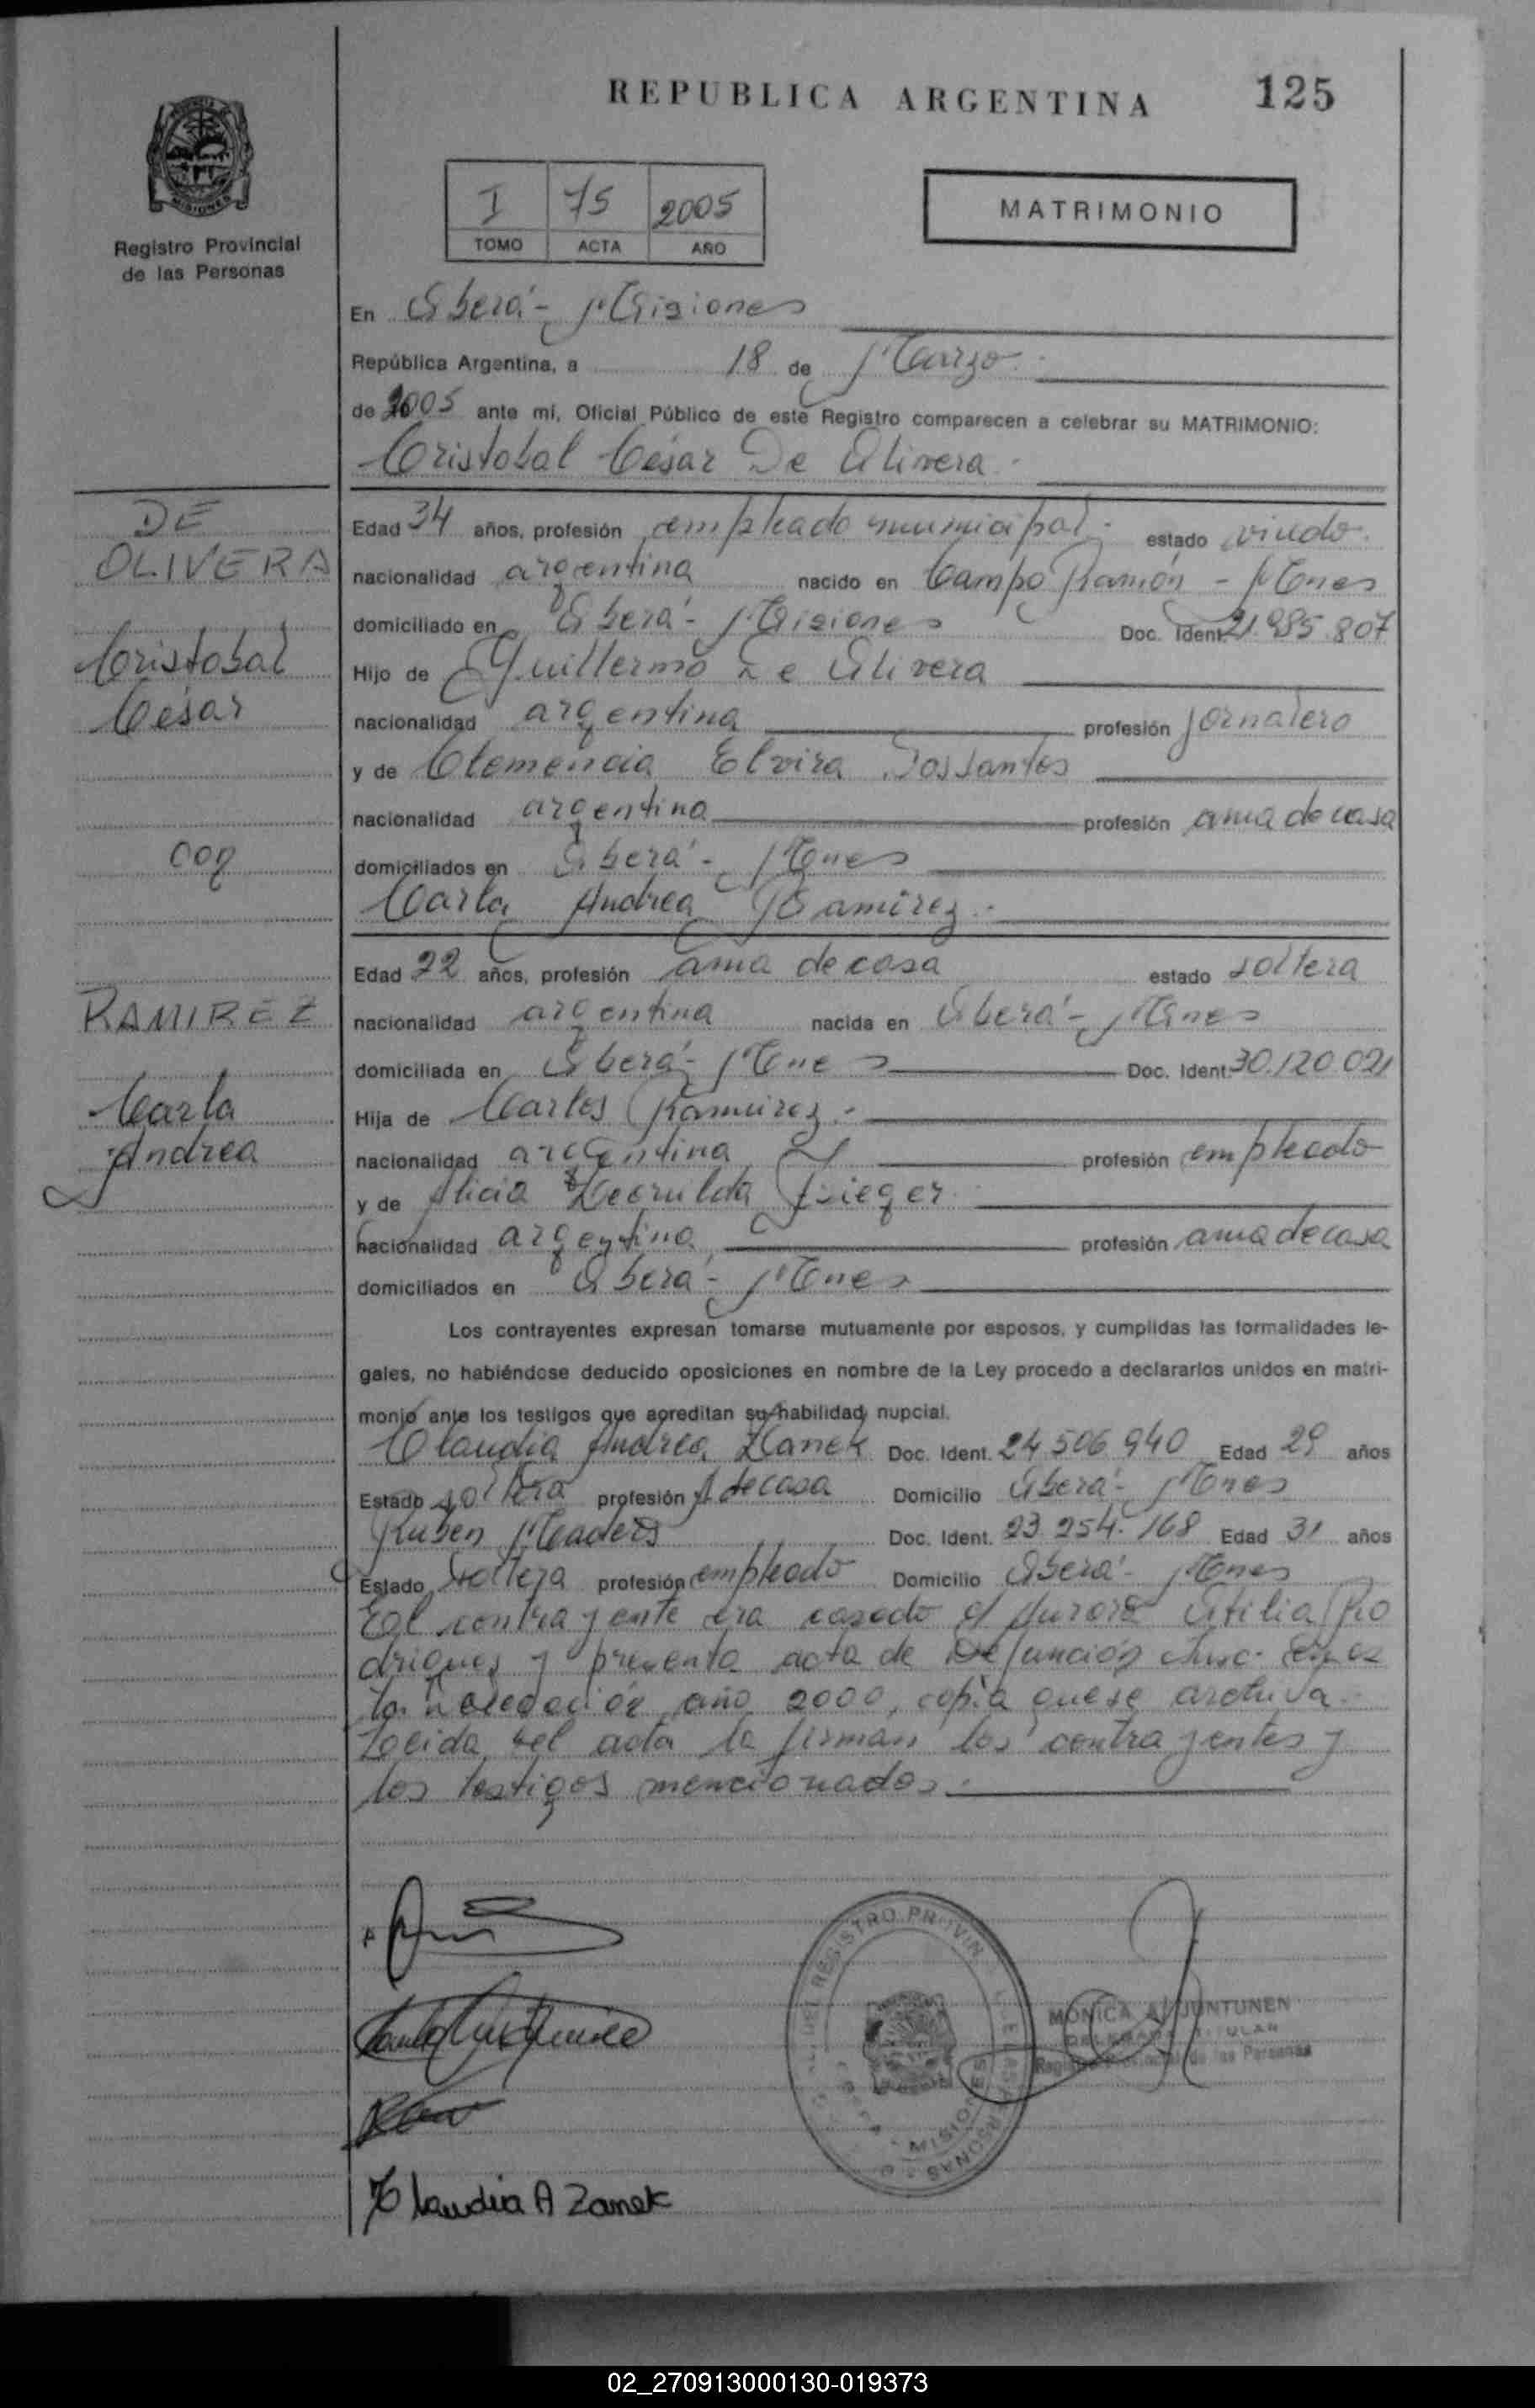 REPUBLICA ARGENTINA
125
MISIONES
Registro Provincial
de las Personas
I 75 2005
TOMO ACTA AÑO
MATRIMONIO
En Oberá - Misiones
República Argentina, a 18 de Marzo
de 2005 ante mí, Oficial Público de este Registro comparecen a celebrar su MATRIMONIO:
Cristobal César De Olivera
DE
OLIVERA
Cristobal
César
con
RAMIREZ
Carla
Andrea
Edad 34 años, profesión empleado municipal estado viudo
nacionalidad argentina nacido en Campo Ramón - Mnes
domiciliado en Oberá - Misiones Doc. Ident. 21.985.807
Hijo de Guillermo De Olivera
nacionalidad argentina profesión jornalero
y de Clemencia Elvira Dos Santos
nacionalidad argentina profesión ama de casa
domiciliados en Oberá - Mnes
Carla Andrea Ramirez
Edad 22 años, profesión ama de casa estado soltera
nacionalidad argentina nacida en Oberá - Mnes
domiciliada en Oberá - Mnes Doc. Ident. 30.120.021
Hija de Carlos Ramirez
nacionalidad argentina profesión empleado
y de Alicia
nacionalidad argentina profesión ama de casa
domiciliados en Oberá - Mnes
Los contrayentes expresan tomarse mutuamente por esposos, y cumplidas las formalidades le-
gales, no habiéndose deducido oposiciones en nombre de la Ley procedo a declararlos unidos en matri-
monio ante los testigos que acreditan su habilidad nupcial.
Claudia Andrea Zanek Doc. Ident. 24.506.940 Edad 29 años
Estado soltera profesión A de casa Domicilio Oberá - Mnes
Ruben Doc. Ident. 23.254.168 Edad 31 años
Estado soltera profesión empleado Domicilio Oberá - Mnes
El contrayente era casado c/ Aurora Otilia Ro
drigues y presenta acta de Defunción
año 2000, copia que se archiva.
Leida el acta la firman los contrayentes y
los testigos mencionados.
DEL REGISTRO PROVIN DE LAS PERSONAS
MISIONES
MONICA A. JUNTUNEN
DELEGADA TITULAR
Registro Provincial de las Personas
Claudia A Zanek
02_270913000130-019373